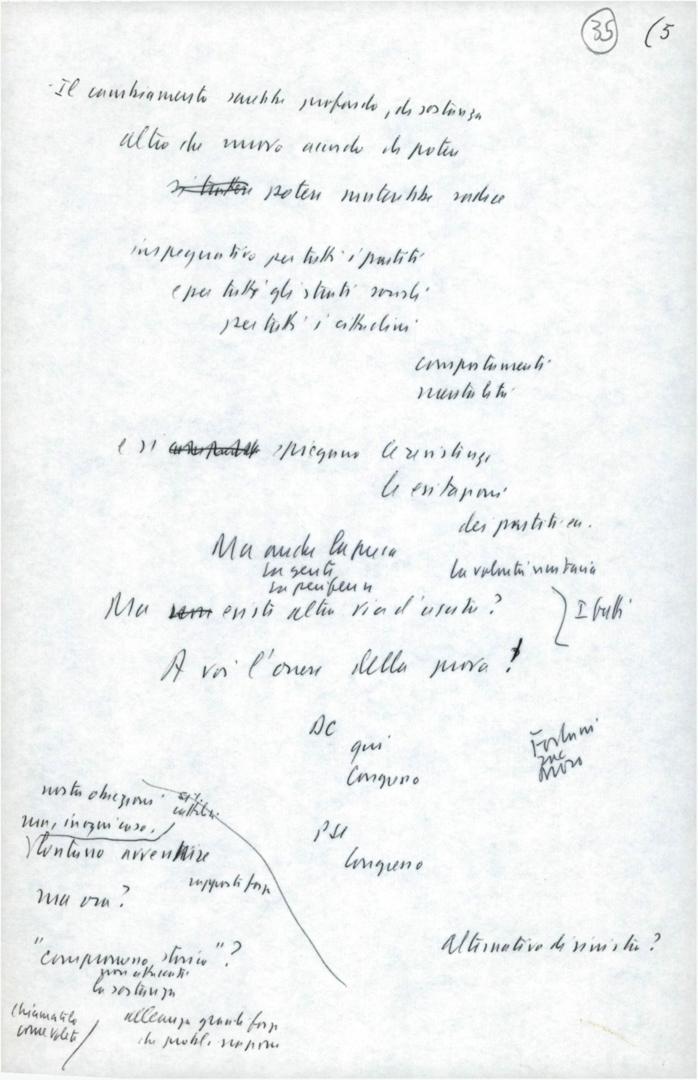 35 (5
Il cambiamento sarebbe profondo, di sostanza
altro che nuovo accordo di potere
potere muterebbe radice
impegnativo per tutti i partiti
e per tutti gli strati sociali
per tutti i cittadini
comportamenti
mentalità
e si spiegano le resistenze
le esitazioni
dei partiti ecc.
Ma anche la presa
la gente
la periferia
la volontà unitaria
Ma esiste altra via d'uscita?
I fatti
A voi l'onere della prova!
DC
qui
Congresso
Forlani
Moro
nostre obiezioni
ma, in ogni caso,
lontano avvenire
rapporti forza
PSI
Congresso
ma ora?
"compromesso storico"?
la sostanza
Alternativa di sinistra?
chiamatelo
come volete
alleanza grandi forze
che problemi impone